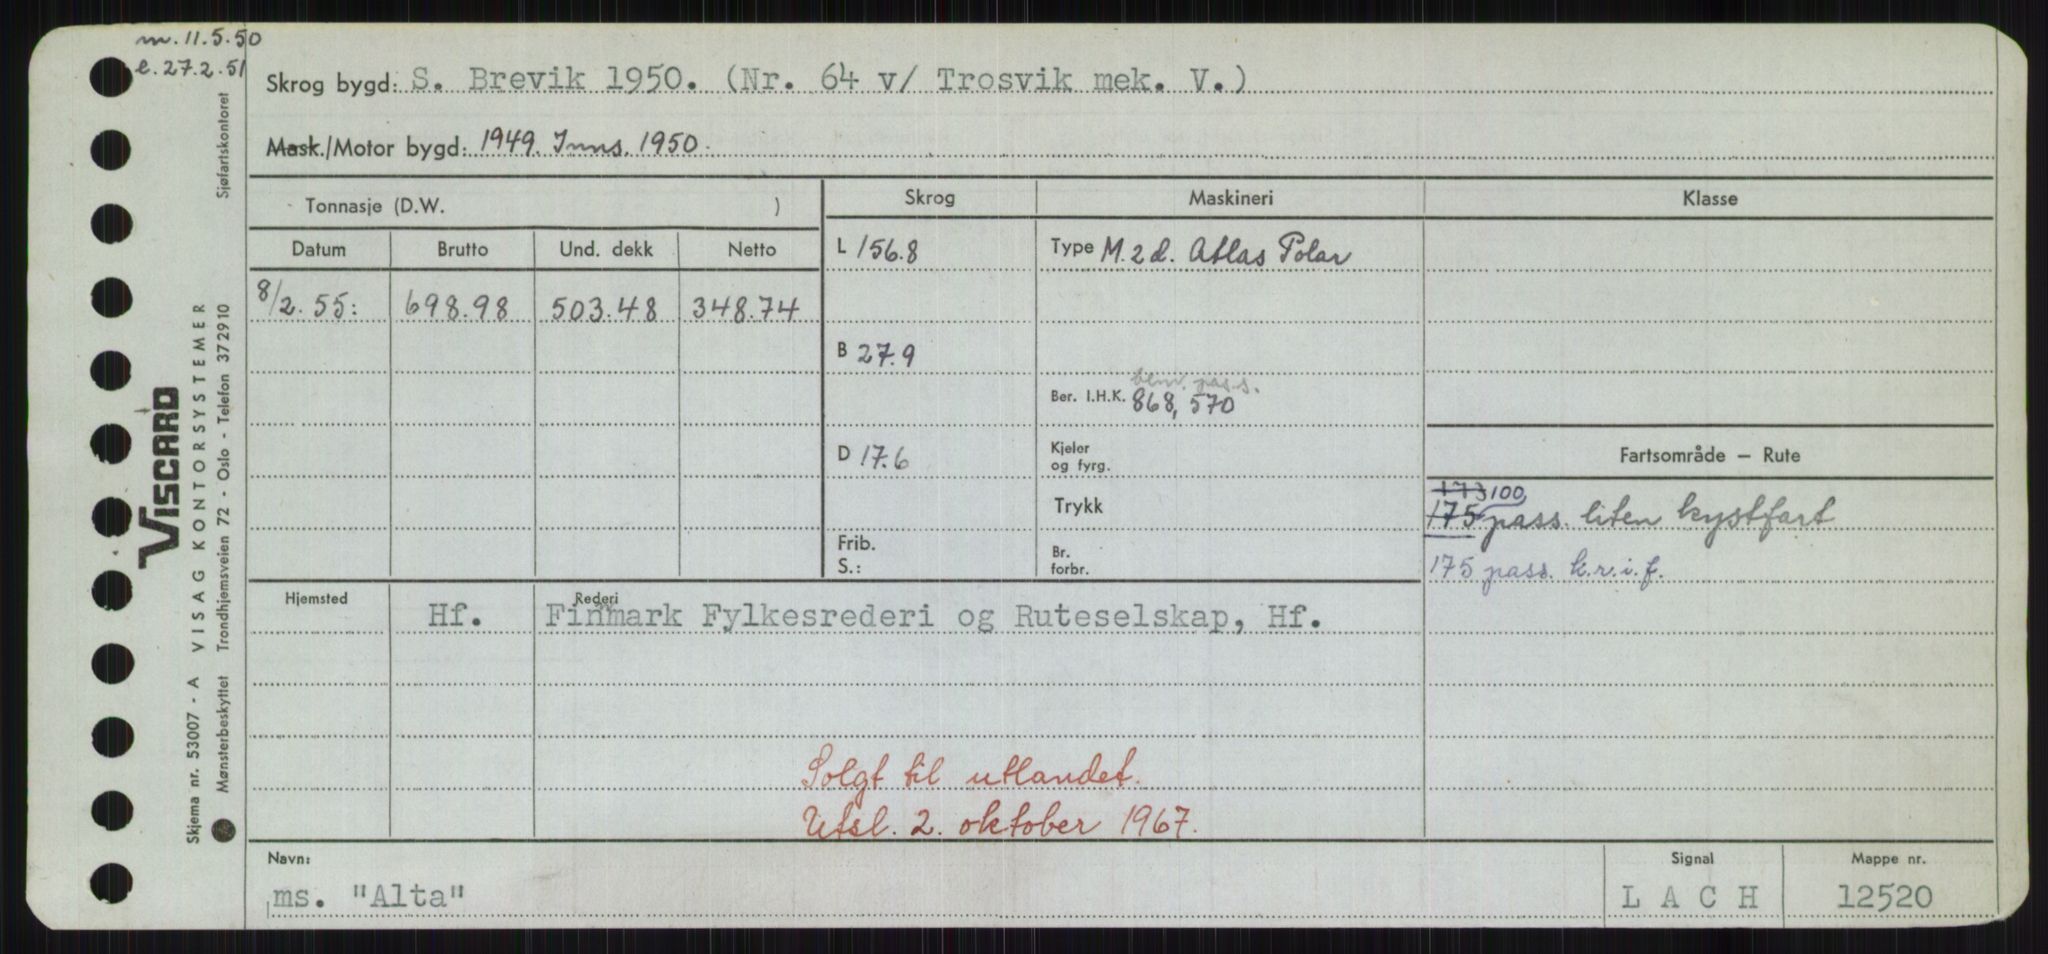 m. 11.5.50
e. 27.2.51
Skrog bygd: S. Brevik 1950. (Nr. 64 v/ Trosvik mek. V.)
Mask./Motor bygd: 1949. Inns. 1950.
Tonnasje (D.W. )
Skrog
Maskineri
Klasse
Datum
Brutto
Und. dekk
Netto
8/2.55:
698.98
503.48
348.74
L 156.8
Type M.2d. Atlas Polar
B 27.9
pass.
Ber. I.H.K. 868, 570
D 17.6
Kjeler
og fyrg.
Trykk
Frib.
S.:
Br.
forbr.
Fartsområde – Rute
173 100
175 pass. liten kystfart
175 pass. k.r.i.f.
Hjemsted
Rederi
Hf. Finnmark Fylkesrederi og Ruteselskap, Hf.
Solgt til utlandet.
Utsl. 2. oktober 1967.
Navn:
ms. "Alta"
Signal
L A C H
Mappe nr.
12520
Skjema nr. 53007 - A VISAG KONTORSYSTEMER
Mønsterbeskyttet Trondhjemsveien 72 - Oslo - Telefon 372910
Sjøfartskontoret
VISCARD